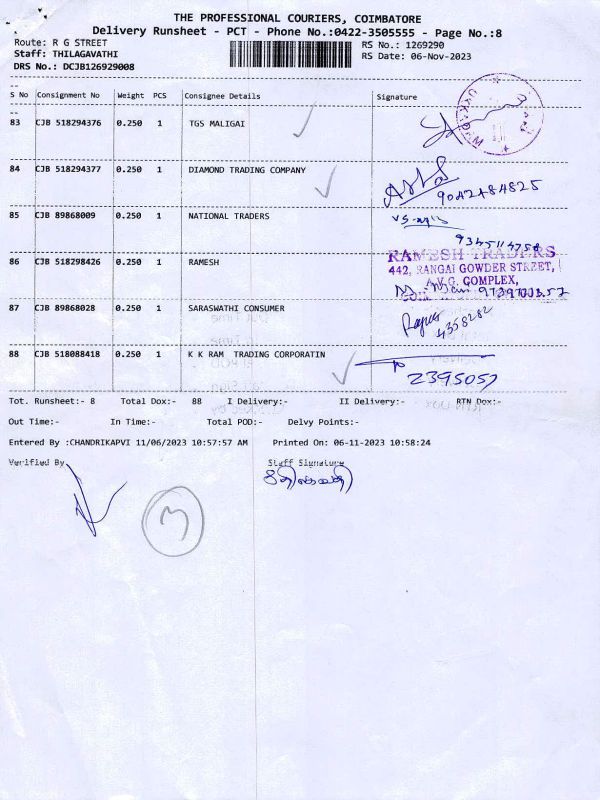 THE PROFESSIONAL COURIERS, COIMBATORE
Delivery Runsheet - PCT - Phone No.:0422-3505555 - Page No.:8
Route: R G STREET
Staff: THILAGAVATHI
DRS No.: DCJB126929008
RS No.: 1269290
RS Date: 06-Nov-2023
S No Consignment No Weight PCS Consignee Details Signature
83 CJB 518294376 0.250 1 TGS MALIGAI
84 CJB 518294377 0.250 1 DIAMOND TRADING COMPANY
9042484825
85 CJB 89868009 0.250 1 NATIONAL TRADERS
86 CJB 518298426 0.250 1 RAMESH
RAMESH TRADERS
442, RANGAI GOWDER STREET,
A.V.G. COMPLEX,
87 CJB 89868028 0.250 1 SARASWATHI CONSUMER
4358282
88 CJB 518088418 0.250 1 K K RAM TRADING CORPORATIN
2395057
Tot. Runsheet:- 8 Total Dox:- 88 I Delivery:- II Delivery:- RTN Dox:-
Out Time:- In Time:- Total POD:- Delvy Points:-
Entered By :CHANDRIKAPVI 11/06/2023 10:57:57 AM Printed On: 06-11-2023 10:58:24
Verified By Staff Signature
3